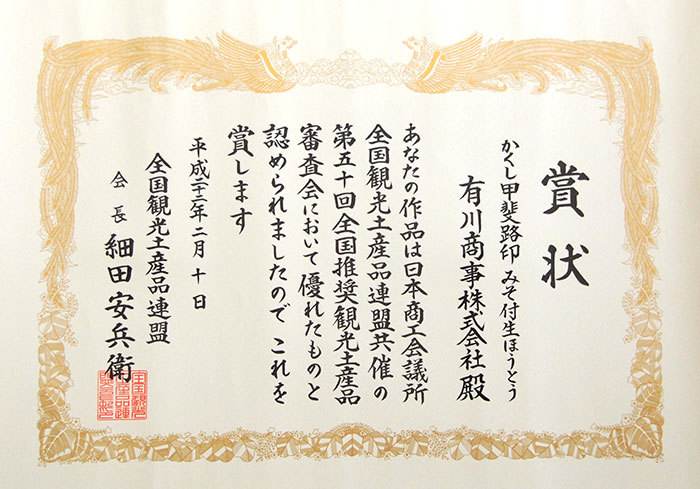 賞状
かくし甲斐路印 みそ付生ほうとう
有川商事株式会社殿
あなたの作品は日本商工会議所
全国観光土産品連盟共催の
第五十回全国推奨観光土産品
審査会において優れたものと
認められましたので これを
賞します
平成二十二年二月十日
全国観光土産品連盟
会長 細田安兵衛